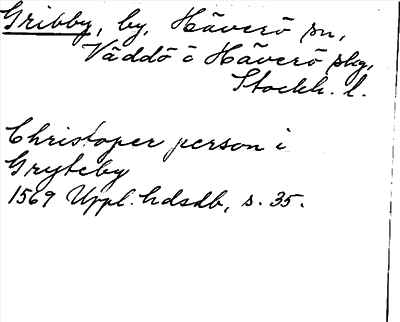 Gribby, by, Häverö sn,
Väddö o Häverö skg,
Stockh. l.
Christoper person i
Gryteby
1569 Uppl. hdskb, s. 35.